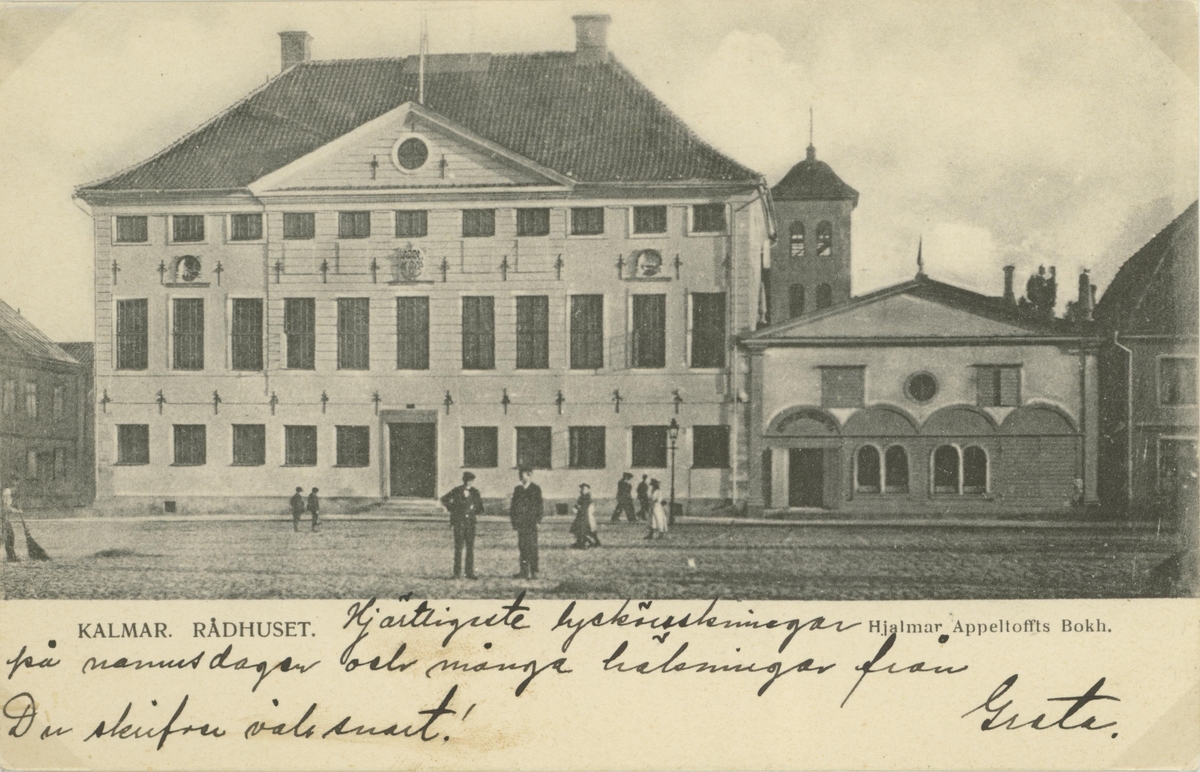 KALMAR. RÅDHUSET.
Hjärtligste lyckönskningar
Hjalmar Appeltoffts Bokh.
på namnsdagen och många hälsningar från
Du skrifver väl snart!
Greta.